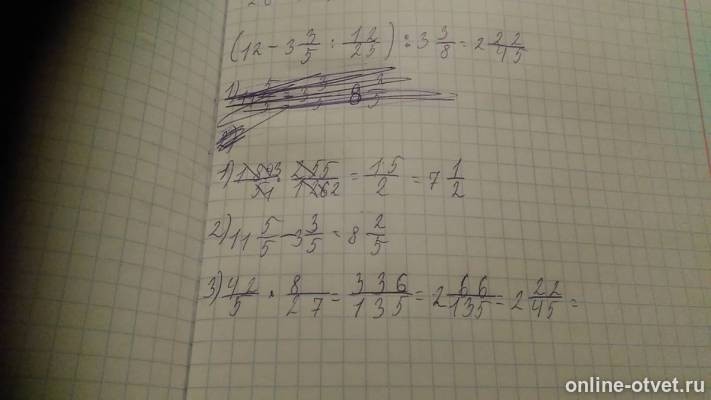 (12 - 3 3/5 : 12/25) : 3 3/8 = 2 22/45
1) 18/5 · 25/12 = 15/2 = 7 1/2
2) 11 5/5 - 3 3/5 = 8 2/5
3) 42/5 · 8/27 = 336/135 = 2 66/135 = 2 22/45 =
online-otvet.ru